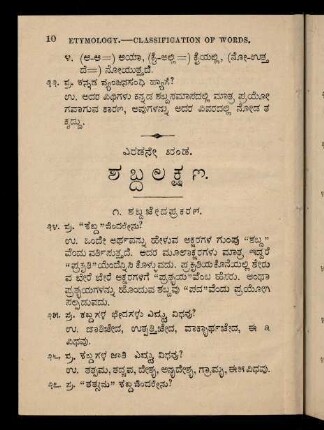 10 ETYMOLOGY.—CLASSIFICATION OF WORDS.
೪. (ಆ-ಆ=) ಅಯಾ, (ಕೈ-ಅಲ್ಲಿ=) ಕೈಯಲ್ಲಿ, (ನೋ-ಉತ್ತ
ದೆ=) ನೋಯುತ್ತದೆ.
೩೩. ಪ್ರ. ಕನ್ನಡ ವ್ಯಂಜನಸಂಧಿ ಹ್ಯಾಗೆ?
ಉ. ಅದರ ವಿಧಿಗಳು ಕನ್ನಡ ಶಬ್ದಸಮಾಸದಲ್ಲಿ ಮಾತ್ರ ಪ್ರಯೋ
ಗವಾಗುವ ಕಾರಣ, ಅವುಗಳನ್ನು ಅದರ ವಿವರದಲ್ಲಿ ನೋಡ ತ
ಕ್ಕದ್ದು.
ಎರಡನೇ ಖಂಡ.
ಶಬ್ದಲಕ್ಷಣ.
೧. ಶಬ್ದಭೇದಪ್ರಕರಣ.
೩೪. ಪ್ರ. “ಶಬ್ದ” ವೆಂದರೇನು?
ಉ. ಒಂದೇ ಅರ್ಥವನ್ನು ಹೇಳುವ ಅಕ್ಷರಗಳ ಗುಂಪು “ಶಬ್ದ”
ವೆಂದು ವರ್ತಿಸುತ್ತದೆ. ಅದರ ಮೂಲಾಕ್ಷರಗಳು ಮಾತ್ರ ಇದ್ದರೆ
“ಪ್ರಕೃತಿ”ಯೆನ್ನಿಸಿ ಕೊಳ್ಳುವದು. ಪ್ರಕೃತಿಯ ಕೊನೆಯಲ್ಲಿ ಸೇರು
ವ ಬೇರೆ ಬೇರೆ ಅಕ್ಷರಗಳಿಗೆ “ಪ್ರತ್ಯಯ”ವೆಂಬ ಹೆಸರು. ಅಂಥಾ
ಪ್ರತ್ಯಯಗಳನ್ನು ಹೊಂದುವ ಶಬ್ದವು “ಪದ”ವೆಂದು ಪ್ರಯೋಗಿ
ಸಲ್ಪಡುವದು.
೩೫. ಪ್ರ. ಶಬ್ದಗಳ ಭೇದಗಳು ಎಷ್ಟು ವಿಧವು?
ಉ. ಜಾತಿಭೇದ, ಉತ್ಪತ್ತಿಭೇದ, ವಾಕ್ಯಾರ್ಥಭೇದ, ಈ ೩
ವಿಧವು.
೩೬. ಪ್ರ. ಶಬ್ದಗಳ ಜಾತಿ ಎಷ್ಟು ವಿಧವು?
ಉ. ತತ್ಸಮ, ತದ್ಭವ, ದೇಶ್ಯ, ಅನ್ಯದೇಶ್ಯ, ಗ್ರಾಮ್ಯ, ಈ ೫ ವಿಧವು.
೩೭. ಪ್ರ. “ತತ್ಸಮ” ಶಬ್ದವೆಂದರೇನು?